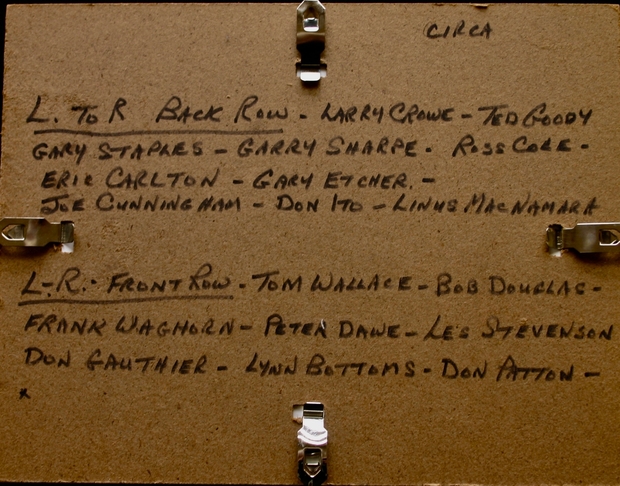 CIRCA
L. TO R BACK ROW - LARRY CROWE - TED GOODY
GARY STAPLES - GARRY SHARPE - ROSS COLE -
ERIC CARLTON - GARY ETCHER. -
JOE CUNNINGHAM - DON ITO - LINUS MACNAMARA
L-R:- FRONT ROW - TOM WALLACE - BOB DOUGLAS -
FRANK WAGHORN - PETER DAWE - LES STEVENSON
DON GAUTHIER - LYNN BOTTOMS - DON PATTON -
*